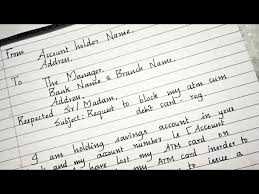 From Account holder Name,
Address.
To The Manager,
Bank Name & Branch Name,
Address,
Respected Sir/ Madam,
Subject: Request to block my atm cum
debit card - reg
I am holding savings account in your
and my account number is [Account
have lost my ATM card on
ATM card inorder to
to issue a